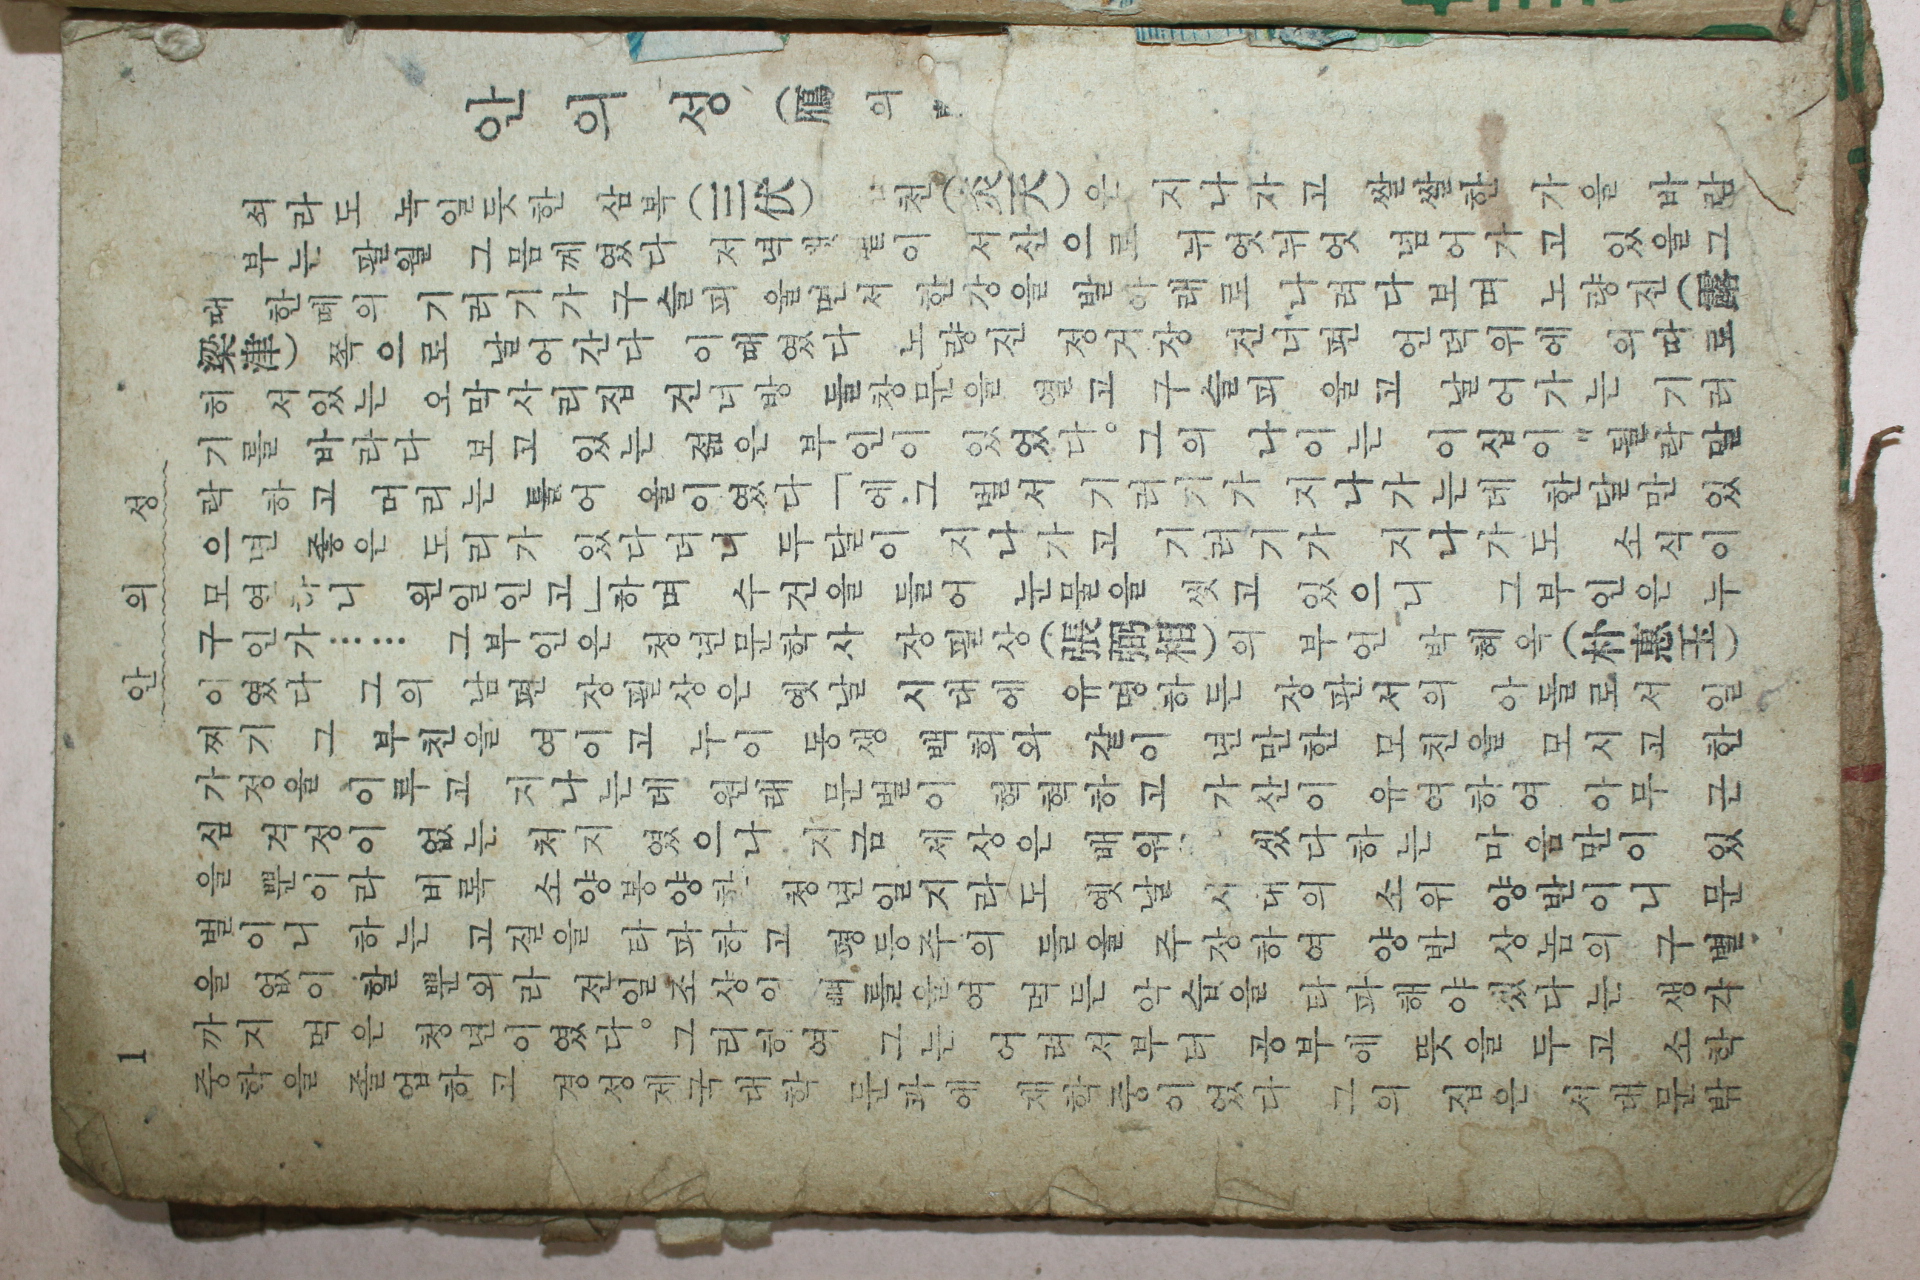 안의성(鴈의声
쇠라도 녹일듯한 삼복(三伏) 천(炎天)은 지나가고 쌀쌀한 가을 바람
부는 팔월 그믐께였다 저녁 햇빛이 서산으로 뉘엿뉘엿 넘어가고 있을그
때 한떼의 기러기가 구슬피 울면서 한강을 발아래로 나려다보며 노량진(露
梁津)쪽으로 날어간다 이때였다 노량진 정거장 건너편 언덕위에 외따로
히 서있는 오막사리집 건너방 들창문을 열고 구슬피 울고 날어가는 기러
기를 바라다 보고 있는 젊은 부인이 있었다。그의 나이는 이십이 될락말
락하고 머리는 틀어 올이였다「에그 벌서 기러기가 지나가는데 한달만 있
으년 좋은 도리가 있다더니 두달이 지나가고 기러기가 지나가도 소식이
모연하니 웬일인고」하며 수건을 들어 눈물을 씻고 있으니 그부인은 누
구인가…… 그부인은 청년문학사 장필상(張弼相)의 부인 박혜옥(朴惠玉)
이였다 그의 남편 장필상은 옛날 시대에 유명하든 장판서의 아들로서 일
찌기 그 부친을 여이고 누이 동생 백희와 같이 년만한 모친을 모시고 한
가정을 이루고 지나는대 원래 문벌이 혁혁하고 가산이 유여하여 아무 근
심 걱정이 없는 처지 였으나 지금 세상은 배워 겠다하는 마음만이 있
을 뿐이라 비록 소양붕양한 청년일지라도 옛날 시대의 소위 양반이니 문
벌이니 하는 고절을 타파하고 평등주의 들을 주장하여 양반 상놈의 구별
을 없이 할 뿐외라 전일조상의 때를을여 럭든 악습을 타파해야 겠다는 생각
까지 먹은 청년이였다。그리하여 그는 어려서부터 공부에 뜻을 두고 소학
중학을 졸업하고 경성제국대학 문과에 재학중이였다 그의 집은 서대문밖
안의성
1